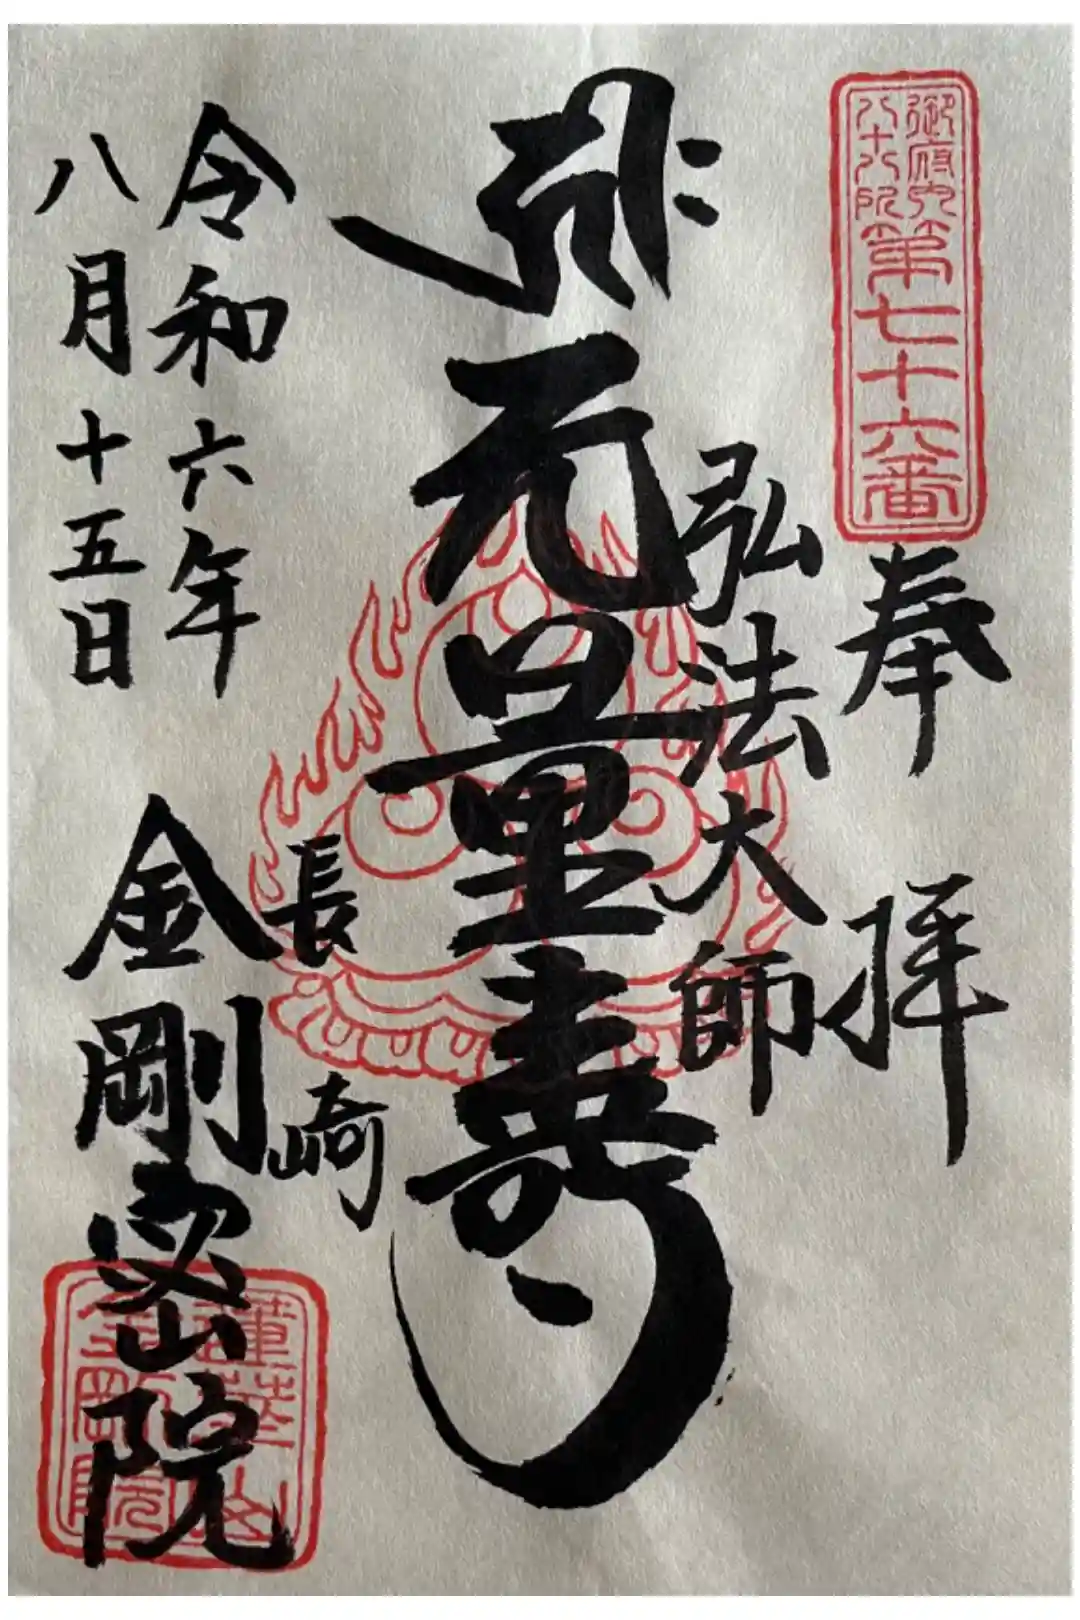 御府内
八十八所
第七十六番
奉拝
弘法大師
𑖮𑖿𑖨𑖱𑖾
无量壽
長崎
令和六年
八月十五日
金剛密院
蓮華山
金剛院